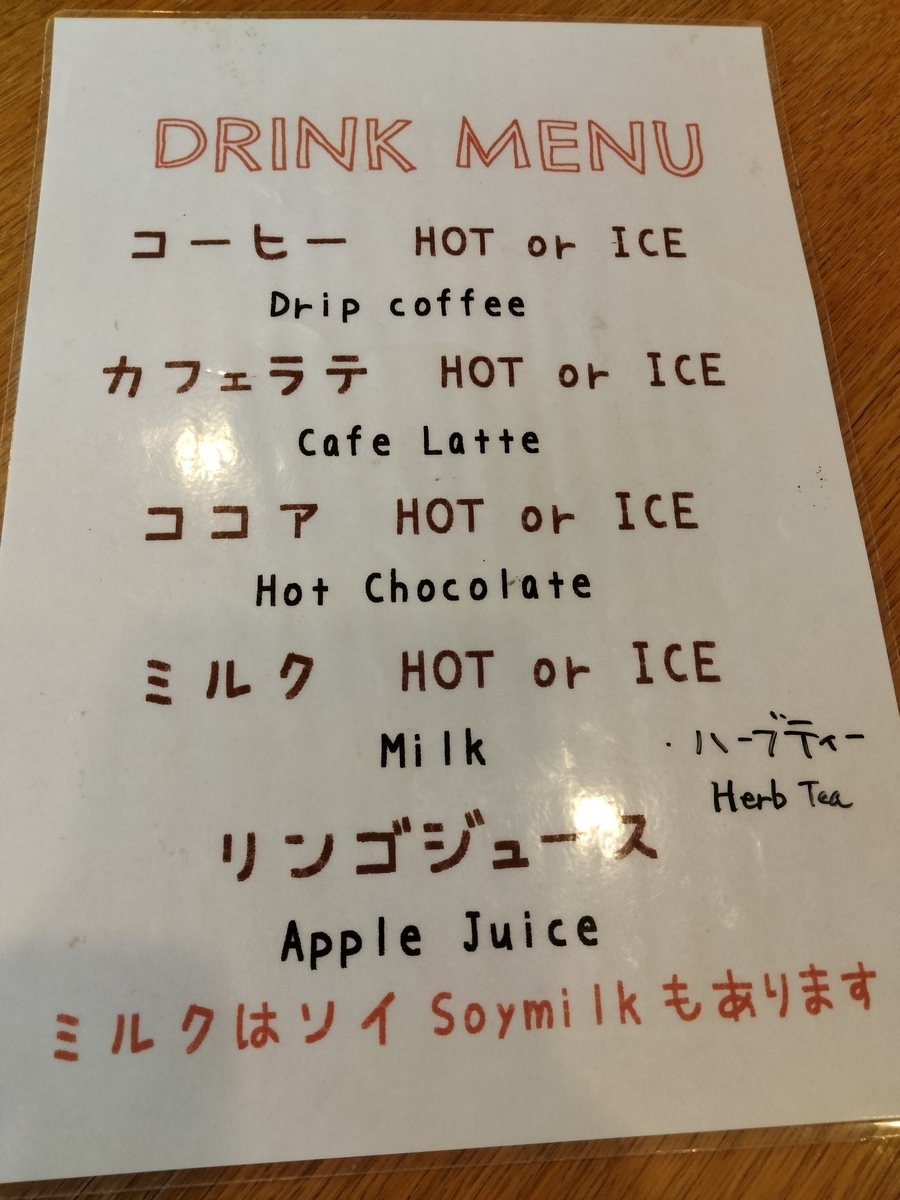 DRINK MENU
コーヒー HOT or ICE
Drip coffee
カフェラテ HOT or ICE
Cafe Latte
ココア HOT or ICE
Hot Chocolate
ミルク HOT or ICE
Milk
・ハーブティー
Herb Tea
リンゴジュース
Apple Juice
ミルクはソイ Soymilkもあります